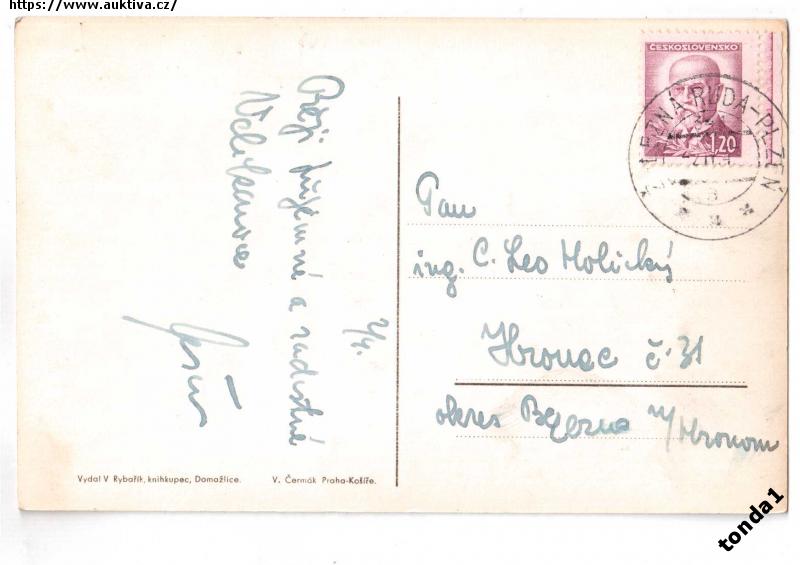 https://www.auktiva.cz/
ČESKOSLOVENSKO
1.20
ŽELEZNÁ RUDA-PLZEŇ
Přeji příjemné a radostné
Velikonoce
2/4.
Pan
ing. C. Leo Holický
Hronec č. 31
okres Brezno n/Hronom
Vydal V Rybařík, knihkupec, Domažlice.
V. Čermák Praha-Košíře.
tonda1